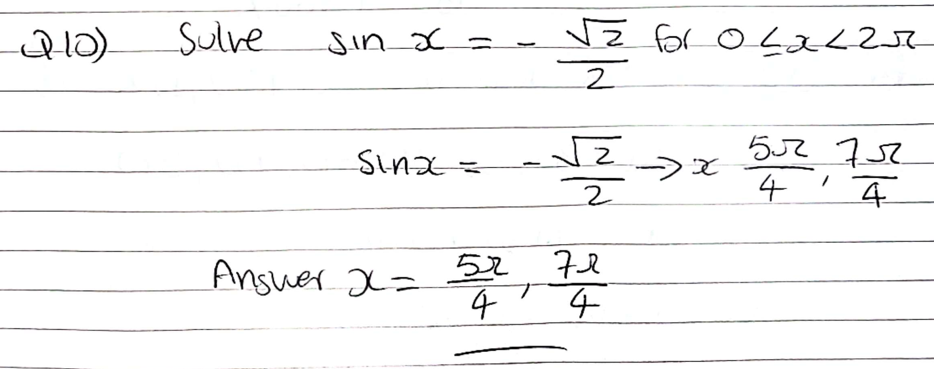 Q10) Solve sin x = - √2/2 for 0 ≤ x < 2π
sinx = - √2/2 → x 5π/4, 7π/4
Answer x = 5π/4, 7π/4